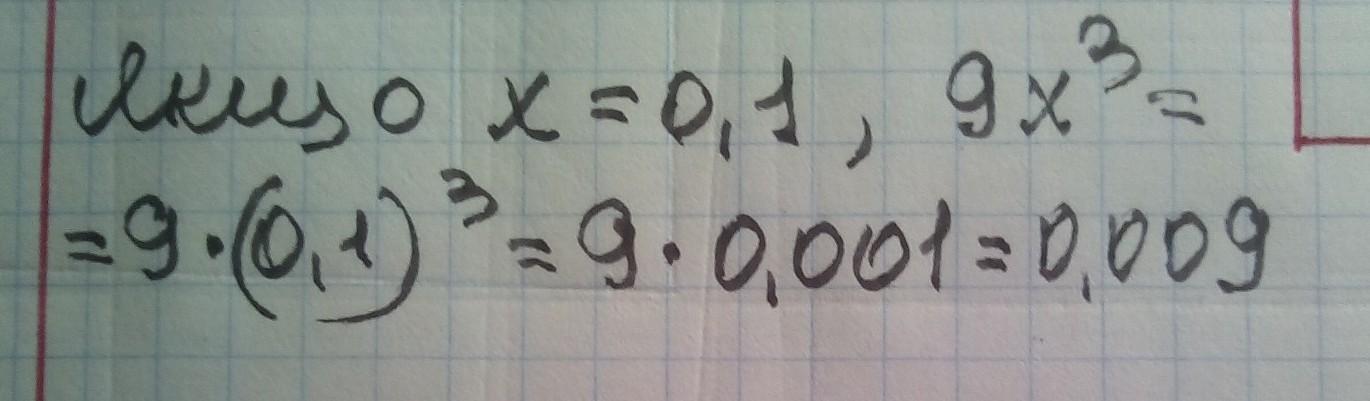 Якщо x = 0,1, 9x³ =
= 9 · (0,1)³ = 9 · 0,001 = 0,009